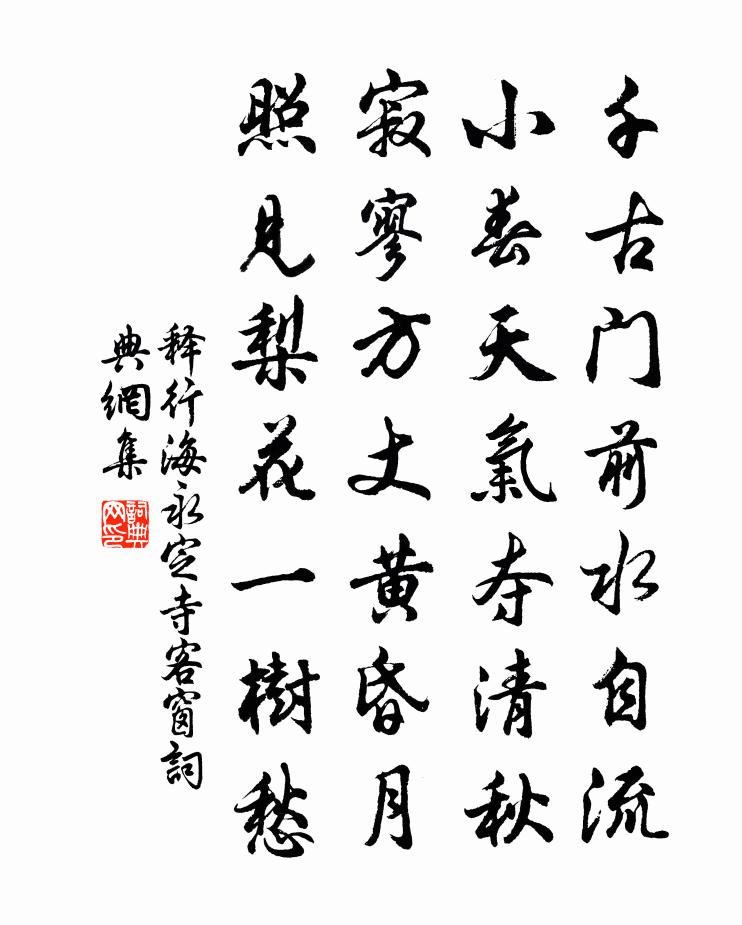 千古門前水自流
小春天氣夺清秋
寂寥方丈黄昏月
照見梨花一樹愁
释行海永定寺客窗詞
典網集
詞典
网印